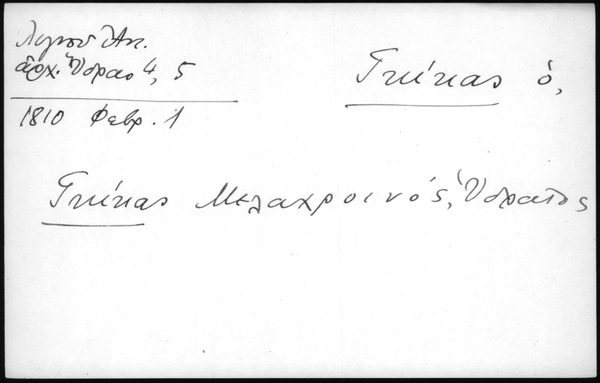 Λιγνού Ἀντ.
ἀρχ. Ὕδρας 4, 5
Γκίκας ὁ,
1810 Φεβρ. 1
Γκίκας Μελαχροινός, Ὑδραῖος